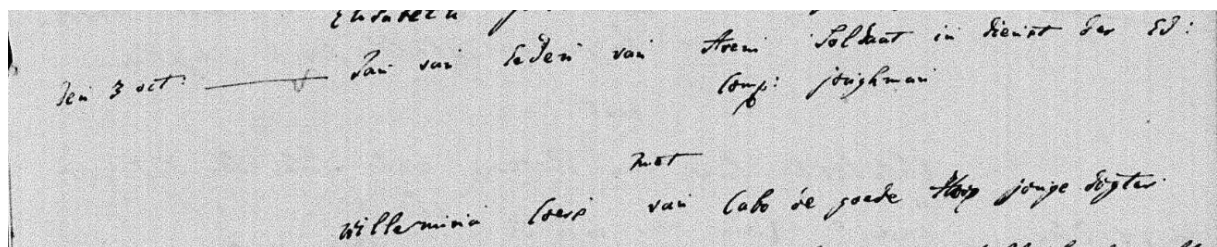 Elisabeth
den 3 oct: Jan van Leden van Aren Soldaat in dienst der Ed:
Comp: jonghman
met
Willemina Coers van Cabo de goede Hoop jonge dogter